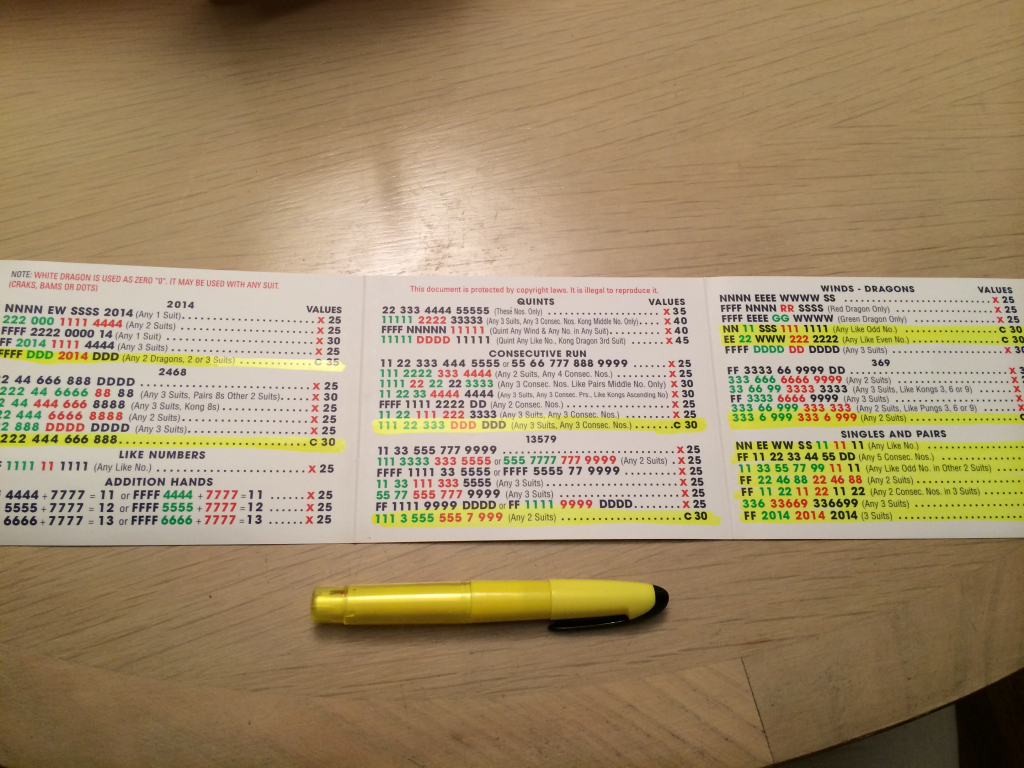 NOTE: WHITE DRAGON IS USED AS ZERO "0". IT MAY BE USED WITH ANY SUIT.
(CRAKS, BAMS OR DOTS)
2014
VALUES
NNNN EW SSSS 2014 (Any 1 Suit) X 25
222 000 1111 4444 (Any 2 Suits) X 25
FFFF 2222 0000 14 (Any 1 Suit) X 30
FF 2014 1111 4444 (Any 3 Suits) X 25
FFFF DDD 2014 DDD (Any 2 Dragons, 2 or 3 Suits) C 35
2468
2 44 666 888 DDDD X 25
222 44 6666 88 88 (Any 3 Suits, Pairs 8s Other 2 Suits) X 30
44 444 666 8888 (Any 3 Suits, Kong 8s) X 25
22 444 6666 8888 (Any 2 Suits) X 25
2 888 DDDD DDDD (Any 3 Suits) X 25
222 444 666 888 C 30
LIKE NUMBERS
1111 11 1111 (Any Like No.) X 25
ADDITION HANDS
4444 + 7777 = 11 or FFFF 4444 + 7777 = 11 X 25
5555 + 7777 = 12 or FFFF 5555 + 7777 = 12 X 25
6666 + 7777 = 13 or FFFF 6666 + 7777 = 13 X 25
This document is protected by copyright laws. It is illegal to reproduce it.
QUINTS
VALUES
22 333 4444 55555 (These Nos. Only) X 35
11111 2222 33333 (Any 3 Suits, Any 3 Consec. Nos. Kong Middle No. Only) X 40
FFFF NNNNN 11111 (Quint Any Wind & Any No. in Any Suit) X 40
11111 DDDD 11111 (Quint Any Like No., Kong Dragon 3rd Suit) X 45
CONSECUTIVE RUN
11 22 333 444 5555 or 55 66 777 888 9999 X 25
111 2222 333 4444 (Any 2 Suits, Any 4 Consec. Nos.) X 25
1111 22 22 22 3333 (Any 3 Consec. Nos. Like Pairs Middle No. Only) X 30
11 22 33 4444 4444 (Any 3 Suits, Any 3 Consec. Prs., Like Kongs Ascending No) X 30
FFFF 1111 2222 DD (Any 2 Consec. Nos.) X 25
11 22 111 222 3333 (Any 3 Suits, Any 3 Consec. Nos.) X 25
111 22 333 DDD DDD (Any 3 Suits, Any 3 Consec. Nos.) C 30
13579
11 33 555 777 9999 X 25
111 3333 333 5555 or 555 7777 777 9999 (Any 2 Suits) X 25
FFFF 1111 33 5555 or FFFF 5555 77 9999 X 25
11 33 111 333 5555 (Any 3 Suits) X 25
55 77 555 777 9999 (Any 3 Suits) X 25
FF 1111 9999 DDDD or FF 1111 9999 DDDD X 25
111 3 555 555 7 999 (Any 2 Suits) C 30
WINDS - DRAGONS
VALUES
NNNN EEEE WWWW SS X 25
FFFF NNNN RR SSSS (Red Dragon Only) X 25
FFFF EEEE GG WWWW (Green Dragon Only) X 25
NN 11 SSS 111 1111 (Any Like Odd No.) C 30
EE 22 WWW 222 2222 (Any Like Even No.) C 30
FFFF DDDD DD DDDD (Any 3 Suits)
369
FF 3333 66 9999 DD
333 666 6666 9999 (Any 2 Suits)
33 66 99 3333 3333 (Any 3 Suits, Like Kongs 3, 6 or 9)
FF 3333 6666 9999 (Any 3 Suits)
333 66 999 333 333 (Any 2 Suits, Like Pungs 3, 6 or 9)
333 6 999 333 6 999 (Any 2 Suits)
SINGLES AND PAIRS
NN EE WW SS 11 11 11 (Any Like No.)
FF 11 22 33 44 55 DD (Any 5 Consec. Nos.)
11 33 55 77 99 11 11 (Any Like Odd No. in Other 2 Suits)
FF 22 46 88 22 46 88 (Any 2 Suits)
FF 11 22 11 22 11 22 (Any 2 Consec. Nos. in 3 Suits)
336 33669 336699 (Any 3 Suits)
FF 2014 2014 2014 (3 Suits)